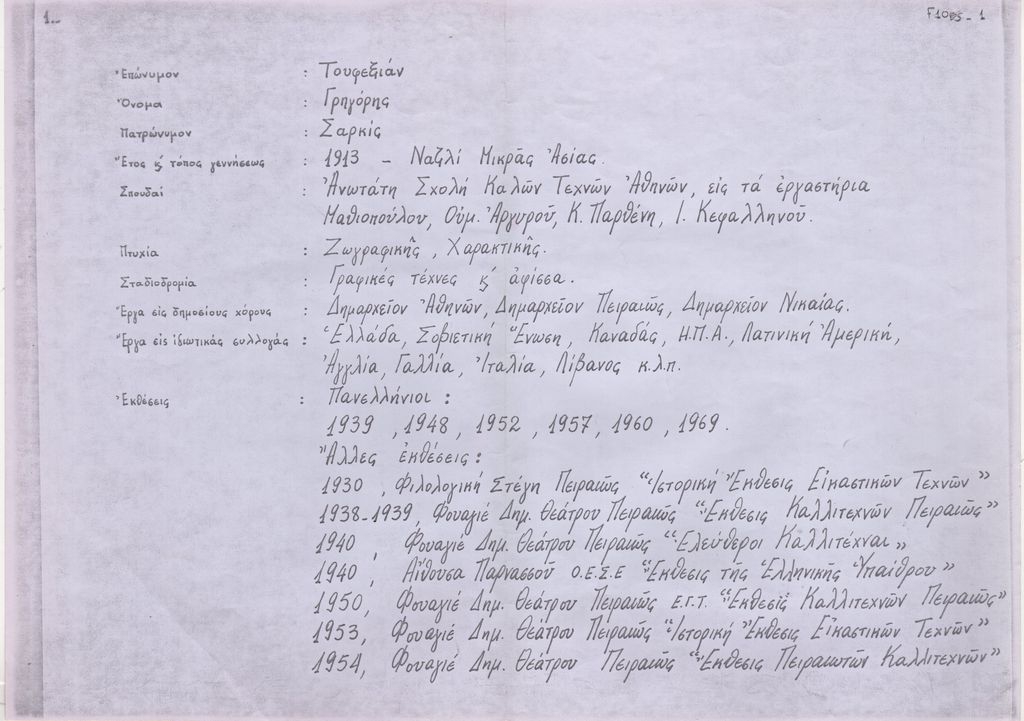 1..
F1005-1
Ἐπώνυμον : Τουφεξιάν
Ὄνομα : Γρηγόρης
Πατρώνυμον : Σαρκίς
Ἔτος κ' τόπος γεννήσεως : 1913 - Ναζλί Μικρᾶς Ἀσίας.
Σπουδαί : Ἀνωτάτη Σχολή Καλῶν Τεχνῶν Ἀθηνῶν, εἰς τά ἐργαστήρια
Μαθιοπούλου, Οὐμ. Ἀργυροῦ, Κ. Παρθένη, Ι. Κεφαλληνοῦ.
Πτυχία : Ζωγραφικῆς, Χαρακτικῆς.
Σταδιοδρομία : Γραφικές τέχνες κ' ἀφίσσα.
Ἔργα εἰς δημοσίους χόρους : Δημαρχεῖον Ἀθηνῶν, Δημαρχεῖον Πειραιῶς, Δημαρχεῖον Νικαίας.
Ἔργα εἰς ἰδιωτικάς συλλογάς : Ἑλλάδα, Σοβιετική Ἕνωση, Καναδάς, Η.Π.Α., Λατινική Ἀμερική,
Ἀγγλία, Γαλλία, Ἰταλία, Λίβανος κ.λ.π.
Ἐκθέσεις : Πανελλήνιοι :
1939 , 1948 , 1952 , 1957 , 1960 , 1969 .
Ἄλλες ἐκθέσεις :
1930 , Φιλολογική Στέγη Πειραιῶς "Ἱστορική Ἔκθεσις Εἰκαστικῶν Τεχνῶν"
1938-1939, Φουαγιέ Δημ. Θεάτρου Πειραιῶς "Ἔκθεσις Καλλιτεχνῶν Πειραιῶς"
1940 , Φουαγιέ Δημ. Θεάτρου Πειραιῶς "Ἐλεύθεροι Καλλιτέχναι"
1940 , Αἴθουσα Παρνασσοῦ Ο.Ε.Σ.Ε "Ἔκθεσις τῆς Ἑλληνικῆς Ὑπαίθρου"
1950, Φουαγιέ Δημ. Θεάτρου Πειραιῶς Ε.Γ.Τ. "Ἔκθεσις Καλλιτεχνῶν Πειραιῶς"
1953, Φουαγιέ Δημ. Θεάτρου Πειραιῶς "Ἱστορική Ἔκθεσις Εἰκαστικῶν Τεχνῶν"
1954, Φουαγιέ Δημ. Θεάτρου Πειραιῶς "Ἔκθεσις Πειραιωτῶν Καλλιτεχνῶν"